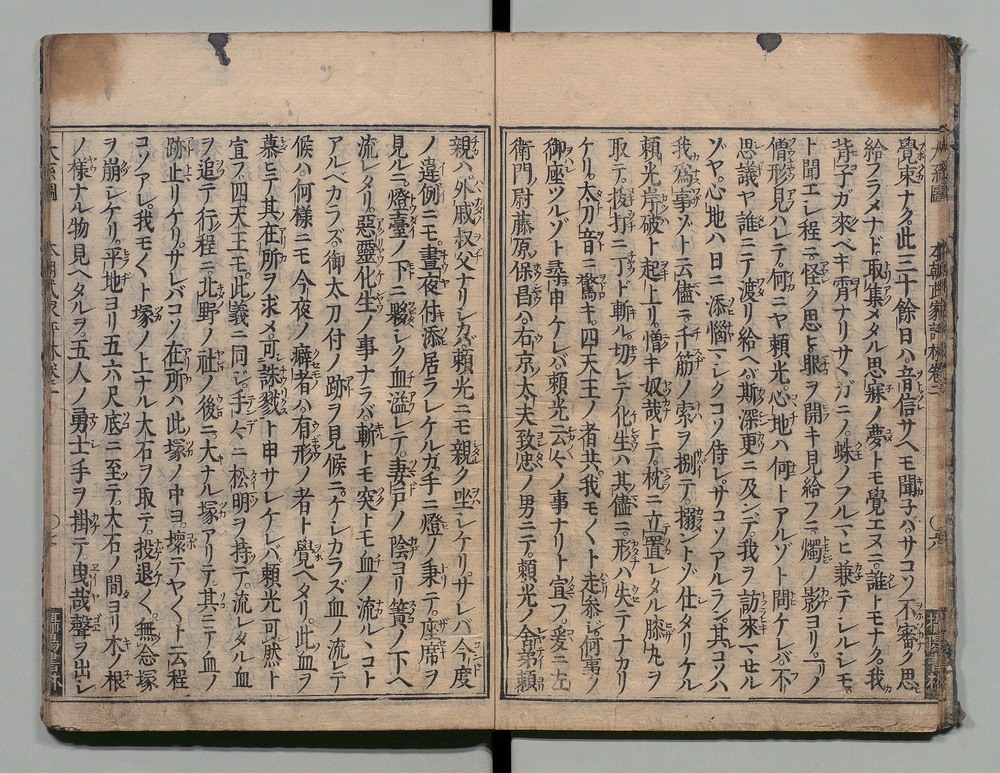 覺束ナク此三十餘日ハ音信サヘモ聞子バサコソ不審ク思
給フラメナド取集メタル思寐ノ夢トモ覺エヌニ誰トモナク我
背子ガ來ベキ宵ナリサヽガニノ蛛ノフルマヒ兼テシルシモ
ト聞エシ程ニ怪ク思ヒ眼ヲ開キ見給フニ燭ノ影ヨリ一ノ
僧形見ハレテ何ニヤ頼光心地ハ何トアルゾト問ケレバ不
思議ヤ誰ニテ渡リ給ヘバ斯深更ニ及ンデ我ヲ訪來マセル
ゾヤ心地ハ日ニ添惱マシクコソ侍レサコソアルラン其コソハ
我爲事ゾト云儘ニ千筋ノ索ヲ捌テ搦ントゾ仕タリケル
頼光岸破ト起上リ憎キ奴哉トテ枕ニ立置レタル膝丸ヲ
取テ抜打ニ丁ド斬ル切レテ化生ハ其儘ニ形ハ失テナカリ
ケリ太刀音ニ驚キ四天王ノ者共我モ〱ト走參ジ何事ノ
御座ツルゾト尋申ケレバ頼光云々ノ事ナリト宜フ爰ニ左
衛門尉藤原保昌ハ右京太夫致忠ノ男ニテ頼光ノ舎弟頼
親ハ外戚叔父ナリシカバ頼光ニモ親ク坐シケリサレバ今度
ノ違例ニモ晝夜付添居ラレケルガ手ニ燈ノ乗テ座席ヲ
見レバ燈臺ノ下ニ夥シク血溢レテ妻戸ノ陰ヨリ簀ノ下ヘ
流レタリ惡靈化生ノ事ナラバ斬トモ突トモ血ノ流ルヽコト
アルベカラズ御太刀付ノ跡ヲ見候ニケシカラズ血ノ流レテ
候ハ何様ニモ今夜ノ癖者ハ有形ノ者ト覺ヘタリ此血ヲ
慕ミテ其在所ヲ求メ可誅戮ト申サレケレバ頼光可然ト
宣フ四天王モ此義ニ同ジ手々ニ松明ヲ持テ流レタル血
ヲ追テ行程ニ北野ノ社ノ後ニ大ナル塚アリテ其ニテ血ノ
跡止リケリサレバコソ在所ハ此塚ノ中ヨ壞テヤ〱ト云程
コソアレ我モ〱ト塚ノ上ナル大石ヲ取テ投退ノケ無念塚
ヲ崩シケリ平地ヨリ五六尺底ニ至テ大石ノ間ヨリ木ノ根
ノ様ナル物見ヘタルヲ五人ノ勇士手ヲ掛テ曳哉聲ヲ出シ